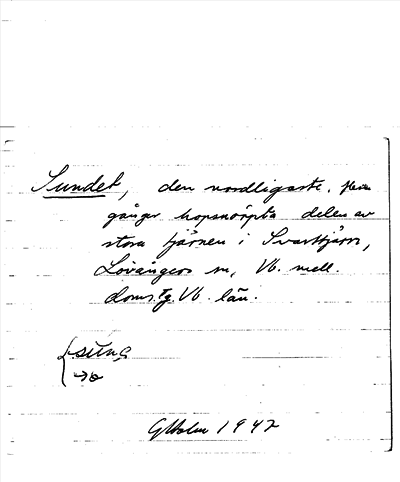 Sundet, den nordligaste, flera
gånger hopsnörpta delen av
stora tjärnen i Svarttjärn,
Lövångers sn, Vb. mell.
doms.tg. Vb. län.
sŭnɘ
→ɘ
G Holm 1942